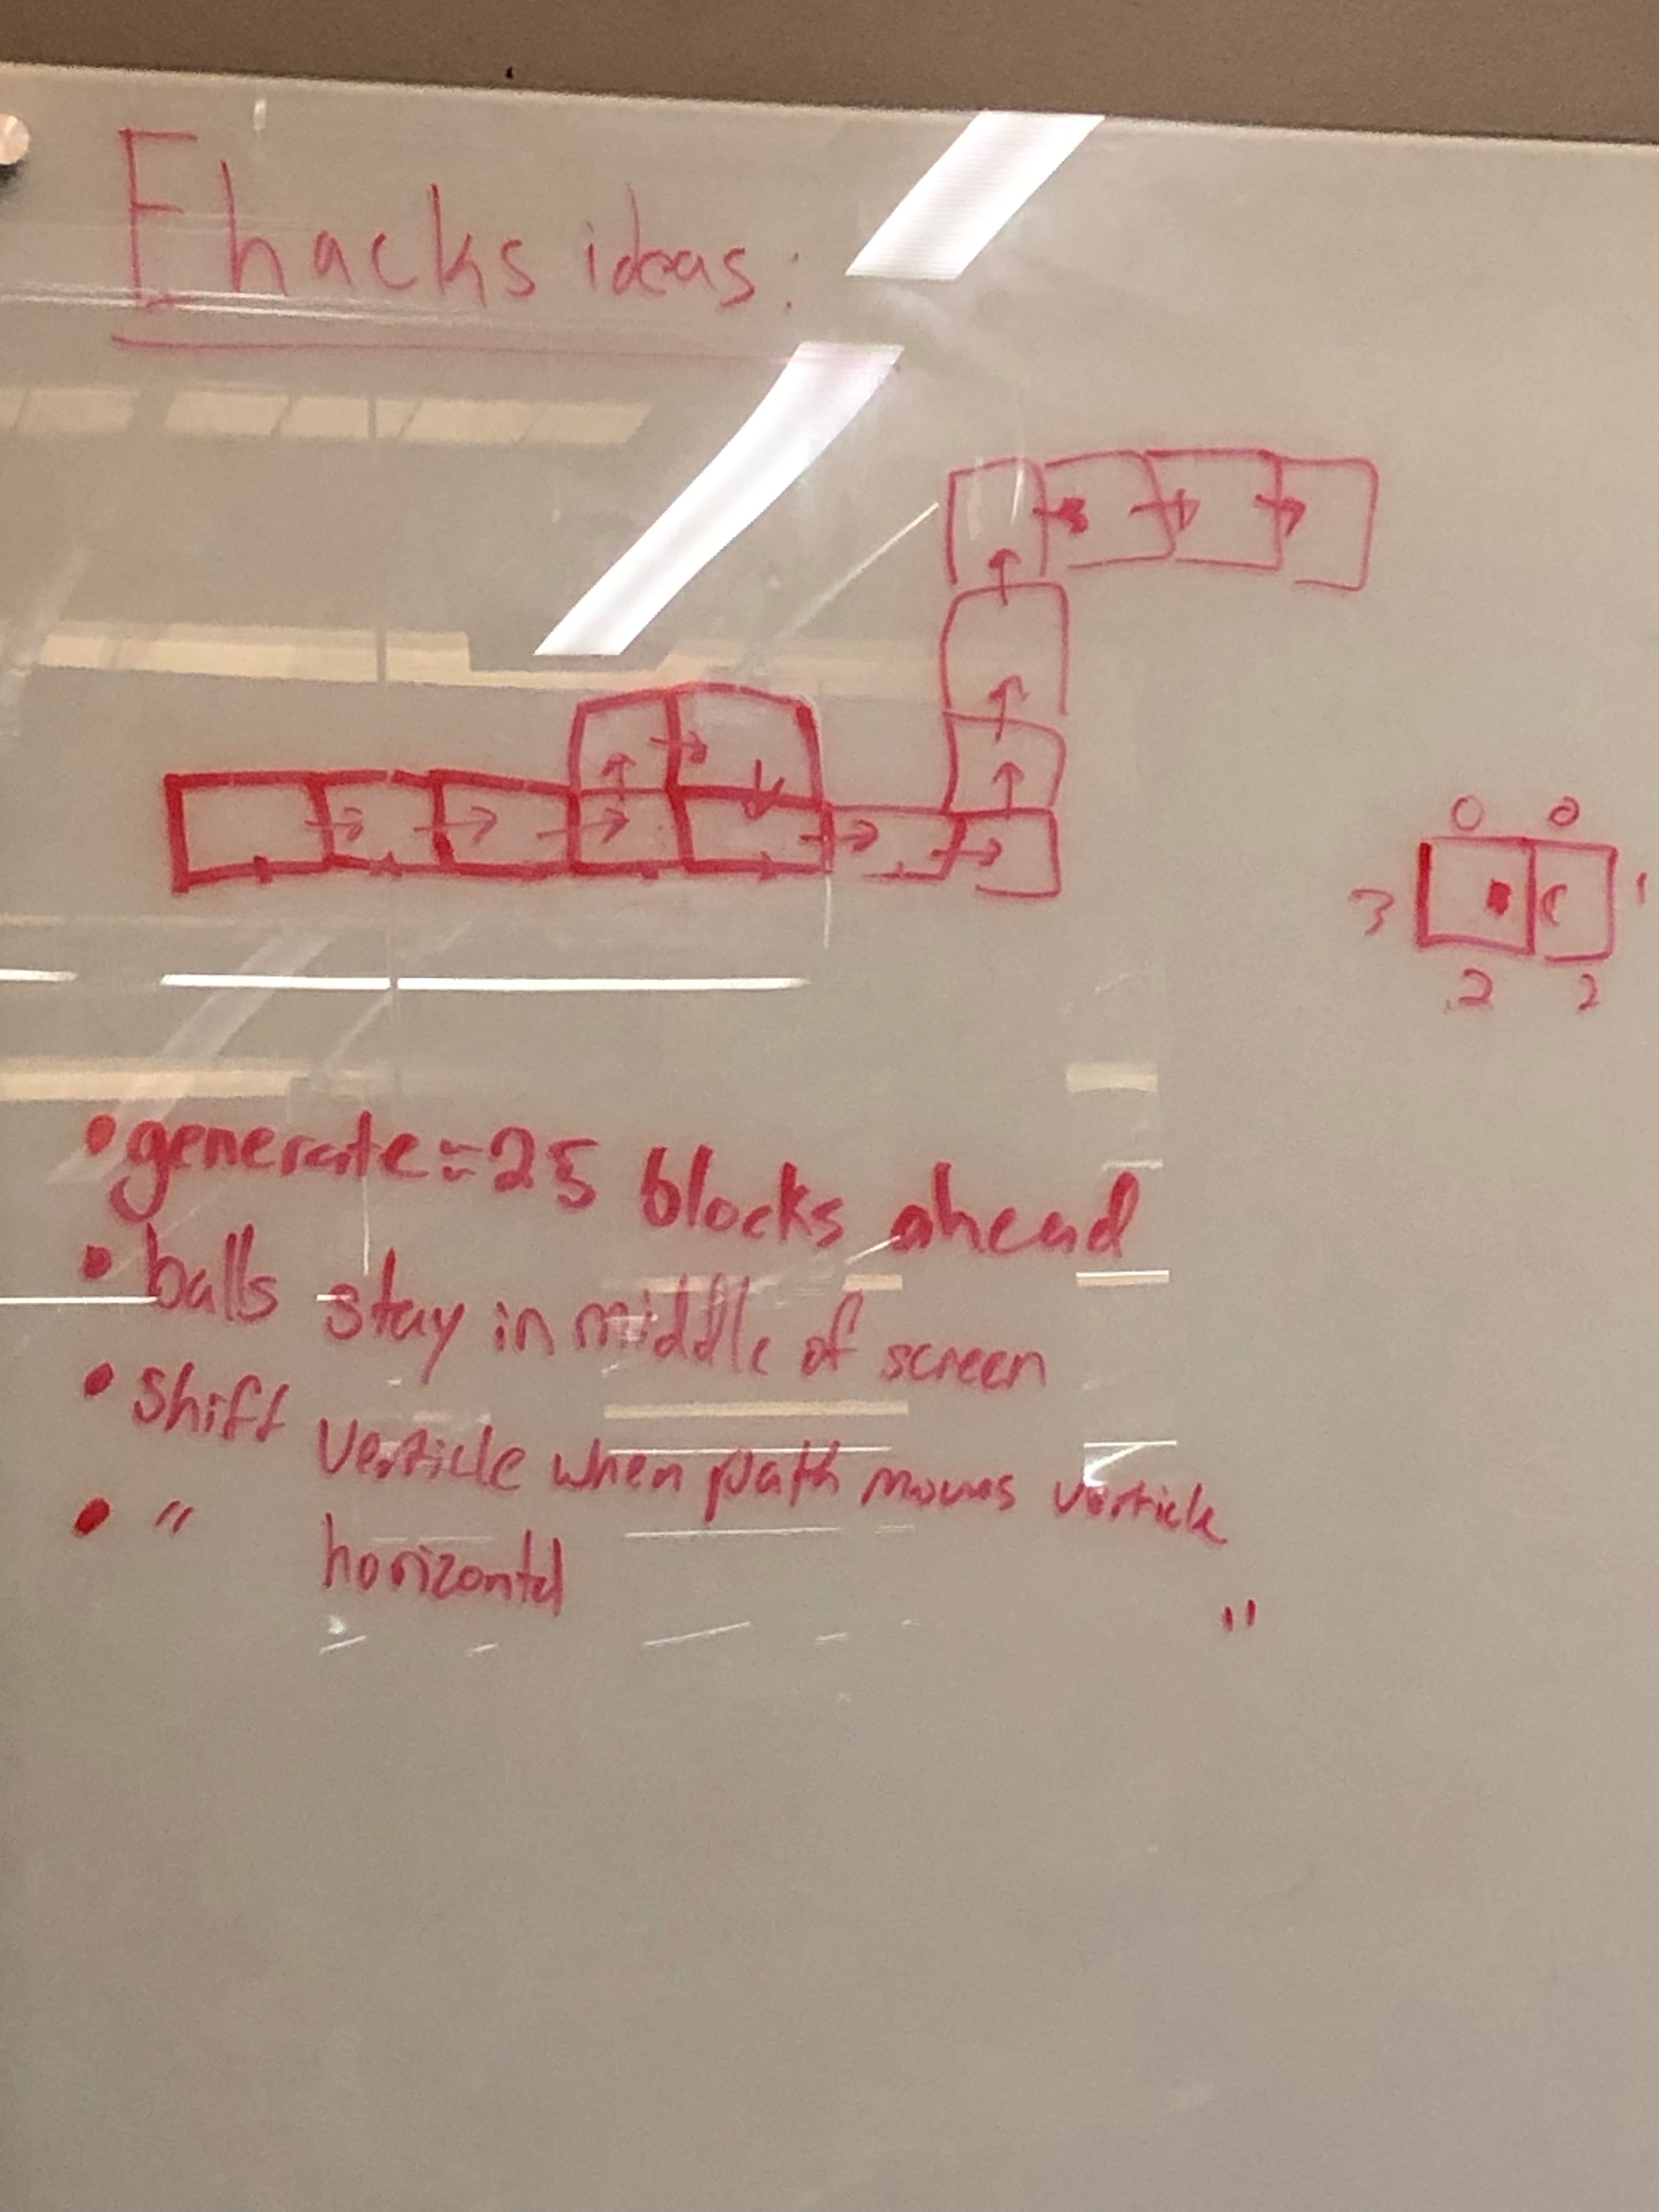 Ehacks ideas:
0 0
3 1
2 2
• generate ≈ 25 blocks ahead
• balls stay in middle of screen
• shift verticle when path moves verticle
• " horizontal "